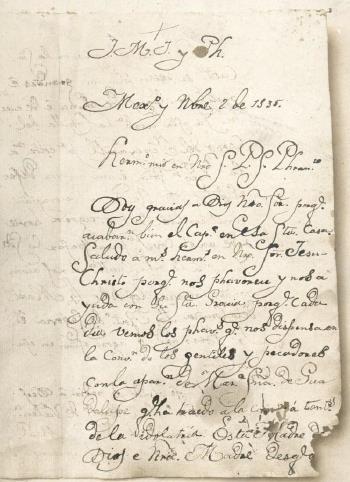 J. M. J. y Ph.
Mexº y Nbre, 2 de 1835.
Hermº mio en Nrõ S. P. S. Phranco
Doy gracias a Dios Nrõ Sor. porq.
acabarõ bien el Capº en esa Sta. Casa
Saludo a mis herms. en Nrõ Sor. Jesu-
Christo porq. nos phavorece y nos a
yuda con su Sta. Gracia porq. cada
dia vemos los phavs. q. nos dispensa en
la Convn. de los gentiles y pecadores
Con la aparn. de Mara. Sma. de Gua
dalupe q. ha traido a la
de la Ydolatria Madre de
Dios e Nrã. Madre